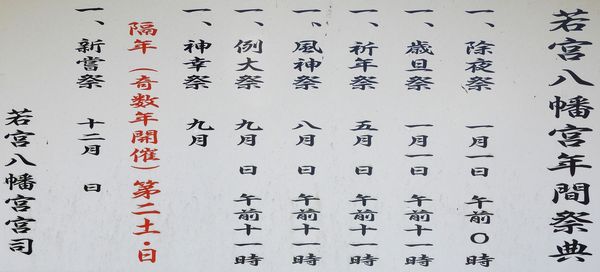 若宮八幡宮年間祭典
一、除夜祭 一月一日 午前〇時
一、歳旦祭 一月一日 午前十一時
一、祈年祭 五月 日 午前十一時
一、風神祭 八月 日 午前十一時
一、例大祭 九月 日 午前十一時
一、神幸祭 九月
隔年(奇数年開催)第二土・日
一、新嘗祭 十二月 日
若宮八幡宮宮司